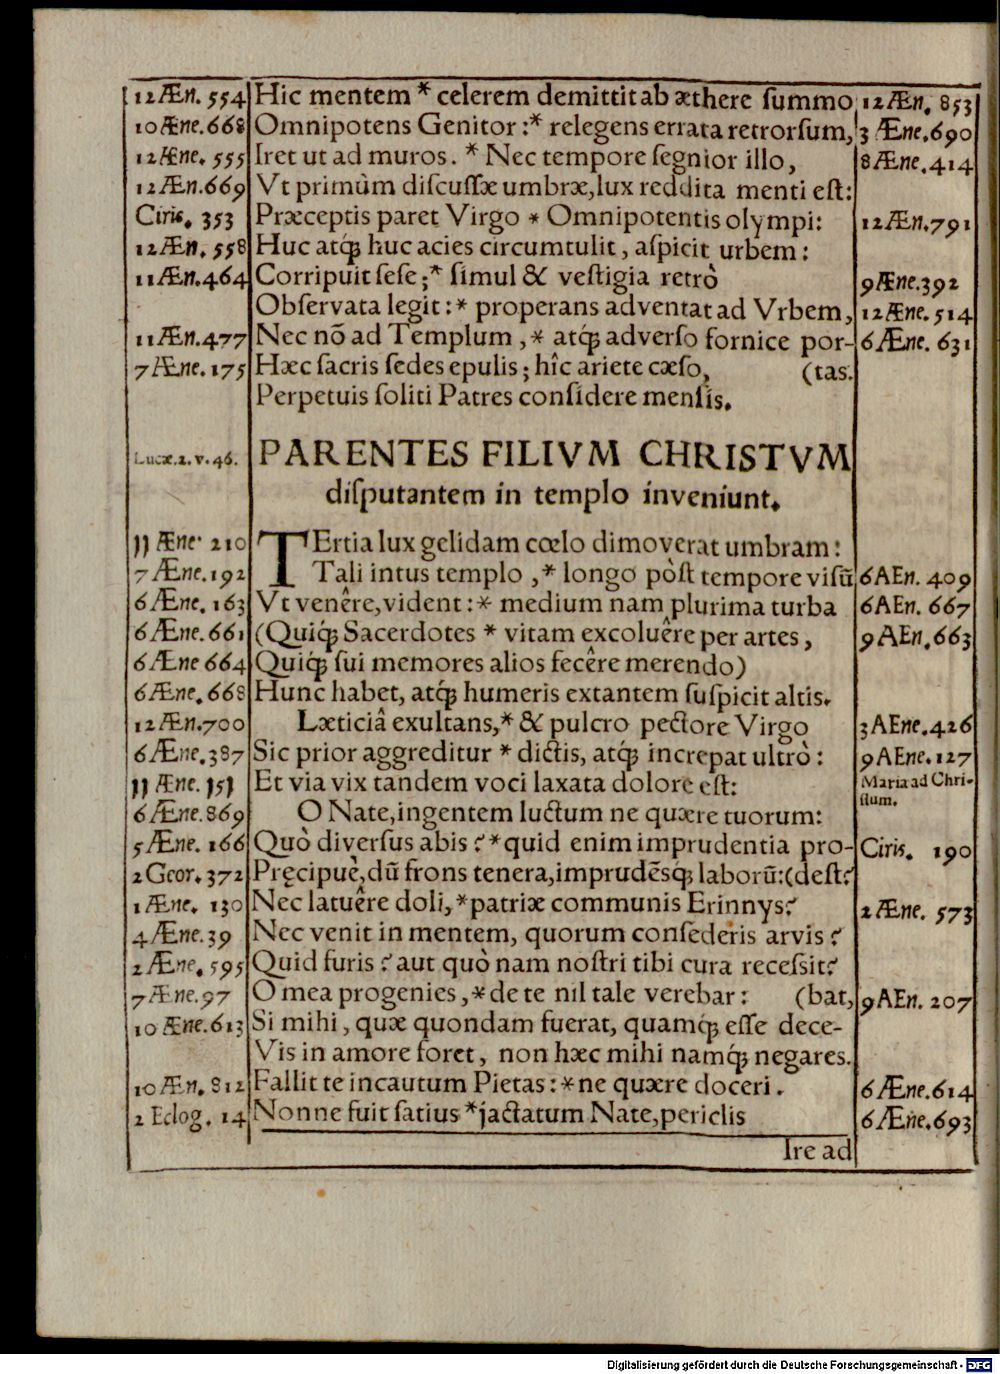 12Æn. 554 Hic mentem * celerem demittit ab æthere ſummo 12Æn. 853
10Æne.668 Omnipotens Genitor :* relegens errata retrorſum, 3 Æne.690
12Æne. 555 Iret ut ad muros. * Nec tempore ſegnior illo, 8Æne.414
12Æn.669 Vt primùm diſcuſſæ umbræ, lux reddita menti eſt:
Ciris. 353 Præceptis paret Virgo * Omnipotentis olympi: 12Æn.791
12Æn. 558 Huc atq́; huc acies circumtulit, aſpicit urbem:
11Æn.464 Corripuit ſeſe;* ſimul & veſtigia retrò 9Æne.392
Obſervata legit :* properans adventat ad Vrbem, 12Æne. 514
11Æn.477 Nec nõ ad Templum, * atq́; adverſo fornice por- 6Æne. 631
7Æne.175 Hæc ſacris ſedes epulis; hîc ariete cæſo, (tas.
Perpetuis ſoliti Patres conſidere menſis.
Lucæ.2.v.46. PARENTES FILIVM CHRISTVM
diſputantem in templo inveniunt.
11 Æne. 210 TErtia lux gelidam cœlo dimoverat umbram:
7Æne.192 Tali intus templo, * longo pòſt tempore viſũ 6AEn. 409
6Æne. 163 Vt venêre, vident :* medium nam plurima turba 6AEn. 667
6Æne.661 (Quiq́; Sacerdotes * vitam excoluêre per artes, 9AEn.663
6Æne 664 Quiq́; ſui memores alios fecêre merendo)
6Æne.668 Hunc habet, atq́; humeris extantem ſuſpicit altis.
12Æn.700 Læticiâ exultans,* & pulcro pectore Virgo 3AEne.426
6Æne.387 Sic prior aggreditur * dictis, atq́; increpat ultrò: 9AEne.127
11 Æne. 151 Et via vix tandem voci laxata dolore eſt: Maria ad Chri-
ſtum.
6Æne.869 O Nate, ingentem luctum ne quære tuorum:
5Æne. 166 Quò diverſus abis? * quid enim imprudentia pro- Ciris. 190
2Geor.372 Pręcipuè, dũ frons tenera, imprudẽsq́; laborũ:(deſt?
1Æne. 130 Nec latuêre doli, * patriæ communis Erinnys? 2Æne. 573
4Æne.39 Nec venit in mentem, quorum conſederis arvis?
2Æne. 595 Quid furis? aut quò nam noſtri tibi cura receſsit?
7Æne.97 O mea progenies, * de te nil tale verebar: (bat, 9AEn. 207
10Æne.613 Si mihi, quæ quondam fuerat, quamq́; eſſe dece-
Vis in amore foret, non hæc mihi namq́; negares.
10Æn. 812 Fallit te incautum Pietas: * ne quære doceri. 6Æne.614
2 Eclog. 14 Nonne fuit ſatius * jactatum Nate, periclis 6Æne.693
Ire ad
Digitalisierung gefördert durch die Deutsche Forschungsgemeinschaft - DFG